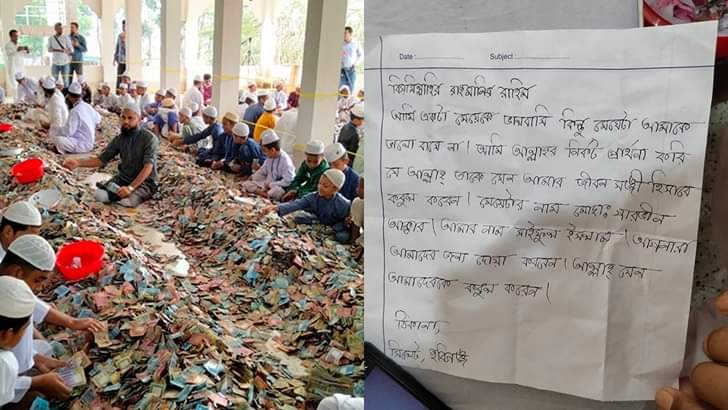 Date : Subject :
বিসমিল্লাহির রাহমানির রাহিম
আমি একটা মেয়েকে ভালবাসি কিন্তু মেয়েটা আমাকে
ভালো বাসে না। আমি আল্লাহর নিকট প্রার্থনা করি
যে আল্লাহ্ তাকে যেন আমার জীবন সঙ্গী হিসাবে
কবুল করেন। মেয়েটার নাম মোছাঃ শারমীন
আক্তার। আমার নাম সাইফুল ইসলাম। আপনারা
আমাদের জন্য দোয়া করবেন। আল্লাহ্ যেন
আমাদেরকে কবুল করেন।
ঠিকানা,
সিলেট, হবিগঞ্জ